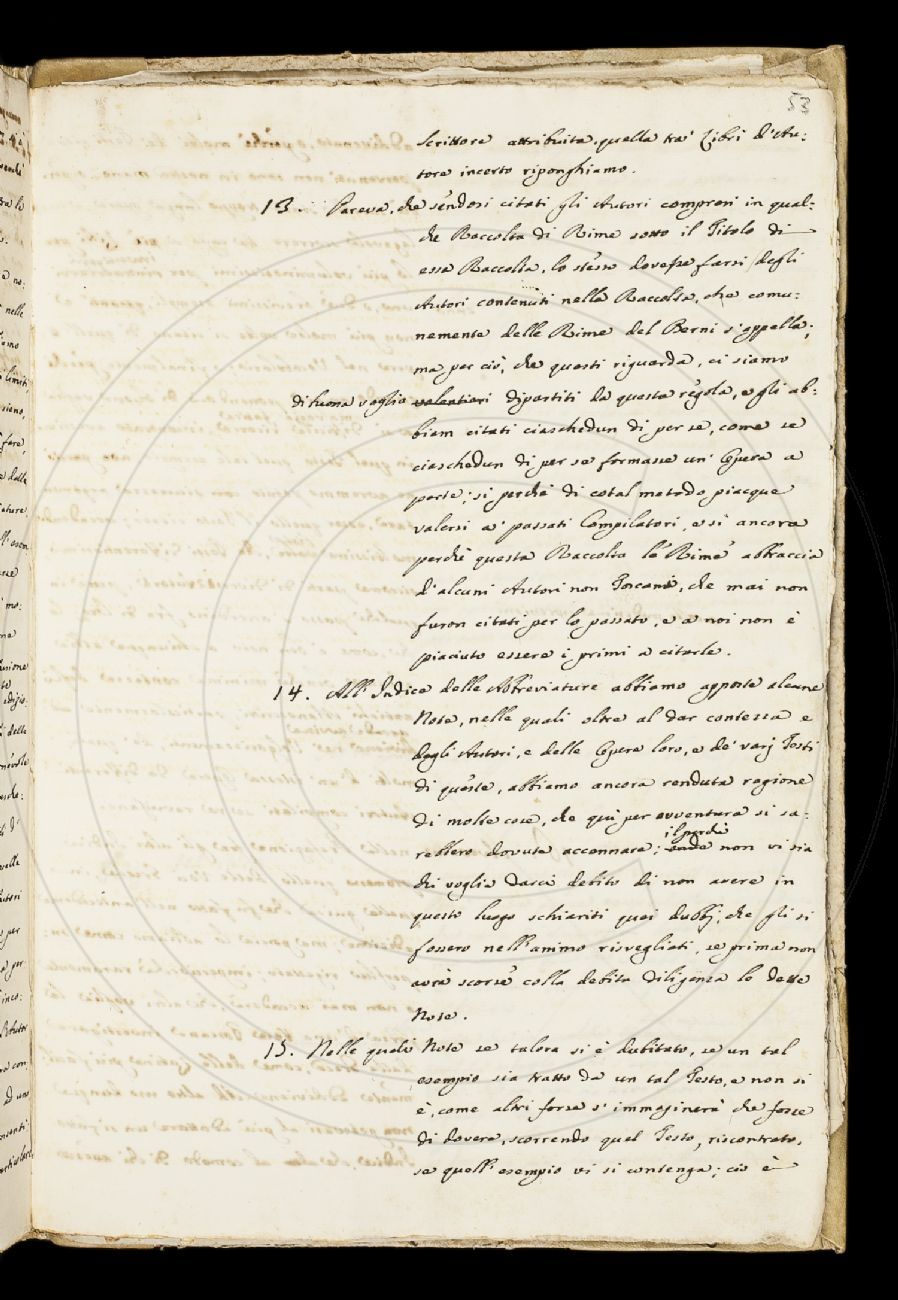 53
scrittore attribuita, quella tra' Libri d'Au:
tore incerto riponghiamo.
13. Pareva, che sendosi citati gli Autori compresi in qual:
che Raccolta di Rime sotto il Titolo di
essa Raccolta, lo stesso dovesse farsi degli
Autori contenuti nella Raccolta, che comu:
nemente delle Rime del Berni s'appella;
ma per ciò, che questi riguarda, ci siamo
di buona voglia volentieri dipartiti da questa regola, e gli ab:
biam citati ciaschedun di per se, come se
ciaschedun di per se formasse un' Opera a
parte; si perchè di cotal metodo piacque
valersi a' passati Compilatori, e si ancora
perchè questa Raccolta le Rime abbraccia
d'alcuni Autori non Toscani, che mai non
furon citati per lo passato, e a noi non è
piaciuto essere i primi a citarle.
14. All' Indice delle Abbreviature abbiamo apposte alcune
Note, nelle quali oltre al dar contezza e
degli Autori, e delle Opere loro, e de' varj Testi
di queste, abbiamo ancora renduta ragione
di molte cose, che qui per avventura si sa:
il perchè
rebbero dovute accennare; onde non vi sia
chi voglia darci debito di non avere in
questo luogo schiariti quei dubbj, che gli si
fossero nell'animo risvegliati, se prima non
avrà scorse colla debita diligenza le dette
Note.
15. Nelle quali Note se talora si è dubitato, se un tal
esempio sia tratto da un tal Testo, e non si
è, come altri forse s' immaginerà che fosse
di dovere, scorrendo quel Testo, riscontrato,
se quell' esempio vi si contenga; ciò è